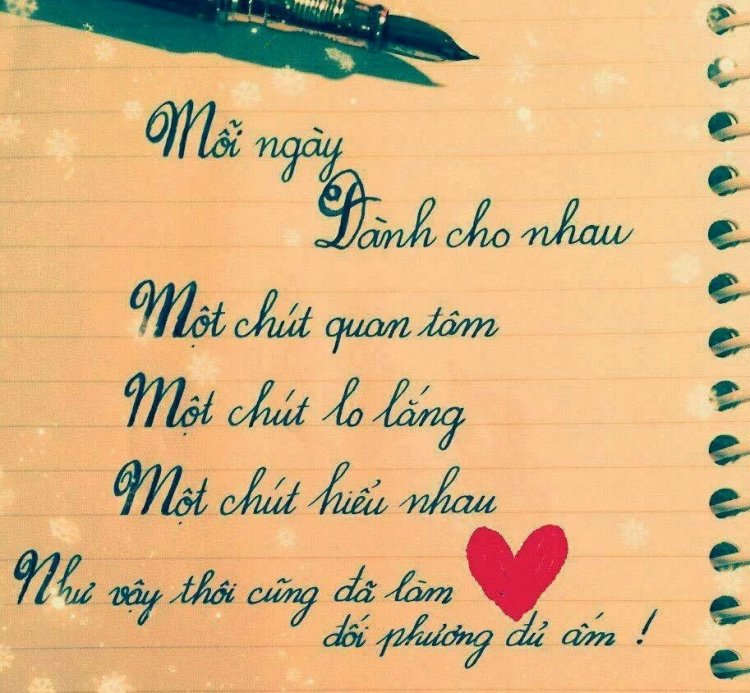 Mỗi ngày
Dành cho nhau
Một chút quan tâm
Một chút lo lắng
Một chút hiểu nhau
Như vậy thôi cũng đã làm
đối phương đủ ấm !